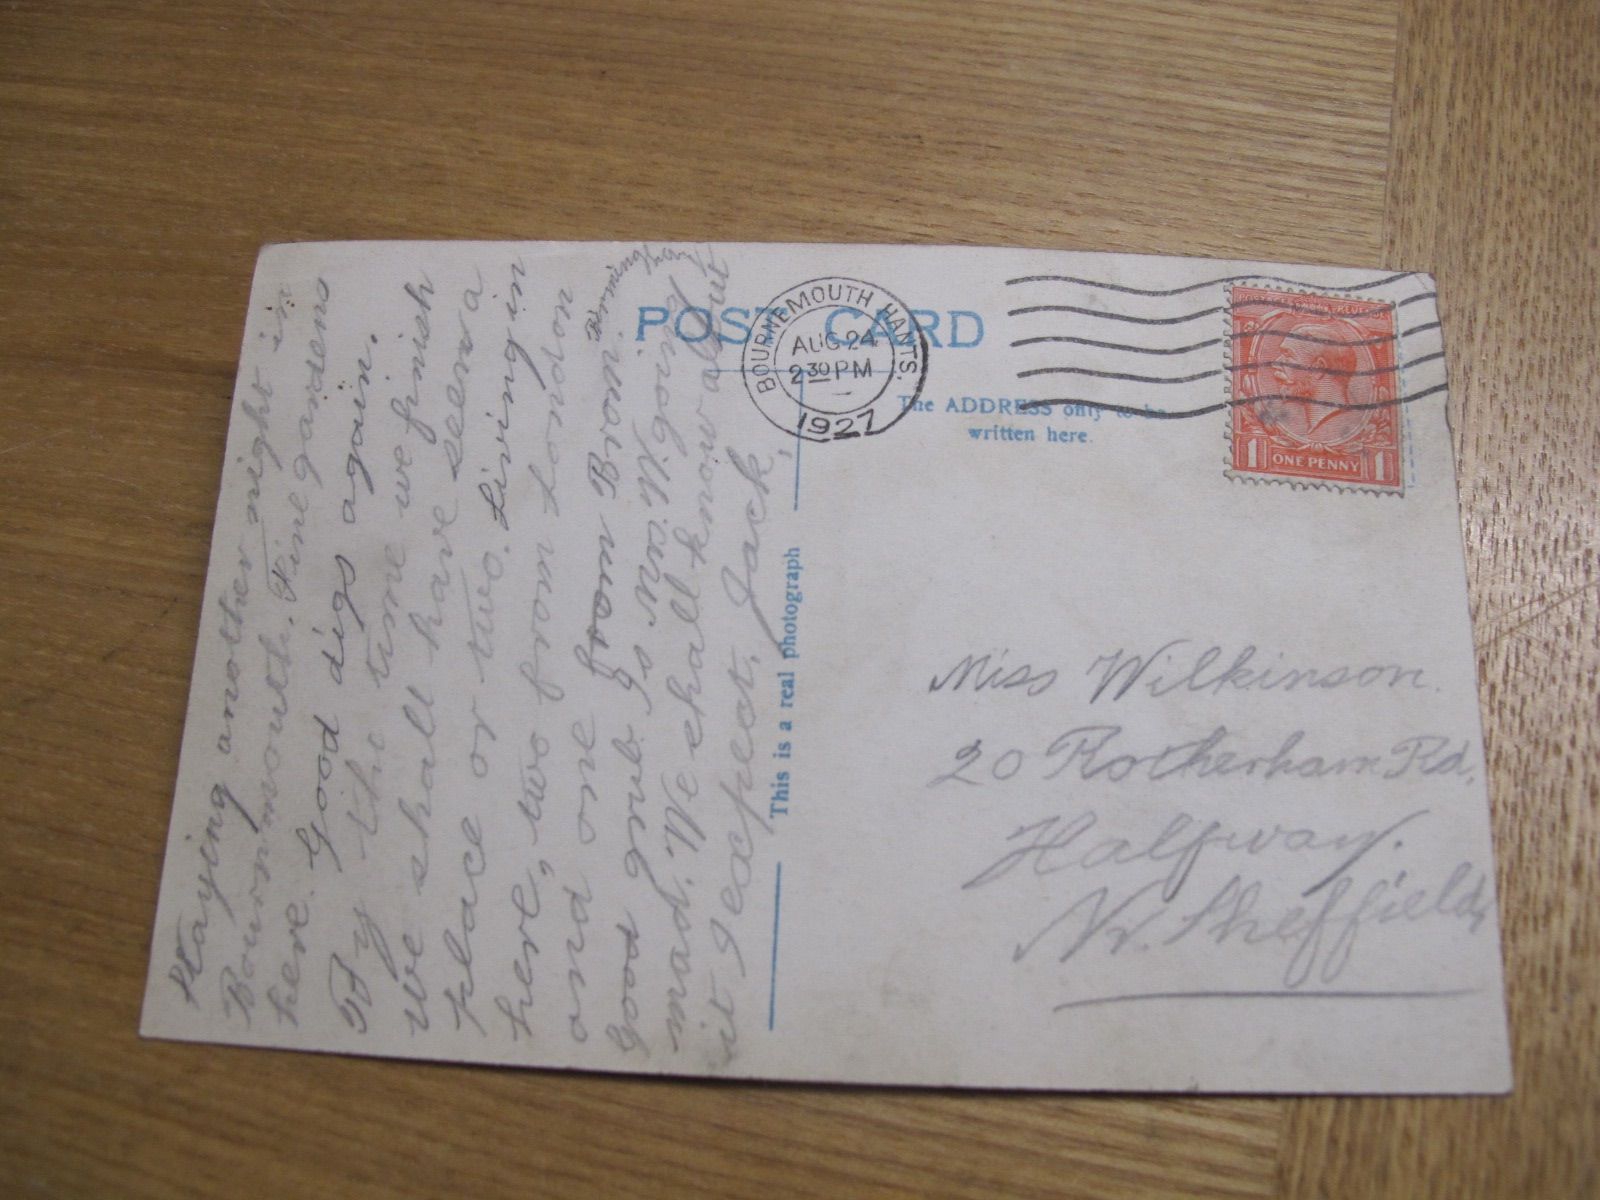 POST CARD
BOURNEMOUTH, HANTS.
AUG 24
2 30 PM
1927
POSTAGE REVENUE
1 ONE PENNY 1
The ADDRESS only to be
written here.
This is a real photograph
Staying another night in
Bournmouth. Fine gardens
here. Good digs again.
By the time we finish
we shall have seen a
place or two. Living in
here, two from London
and one from Brom.
Good grub &
mad. We shall know about
it I expect. Jack
Miss Wilkinson.
20 Rotherham Rd.
Halfway.
Nr. Sheffield,